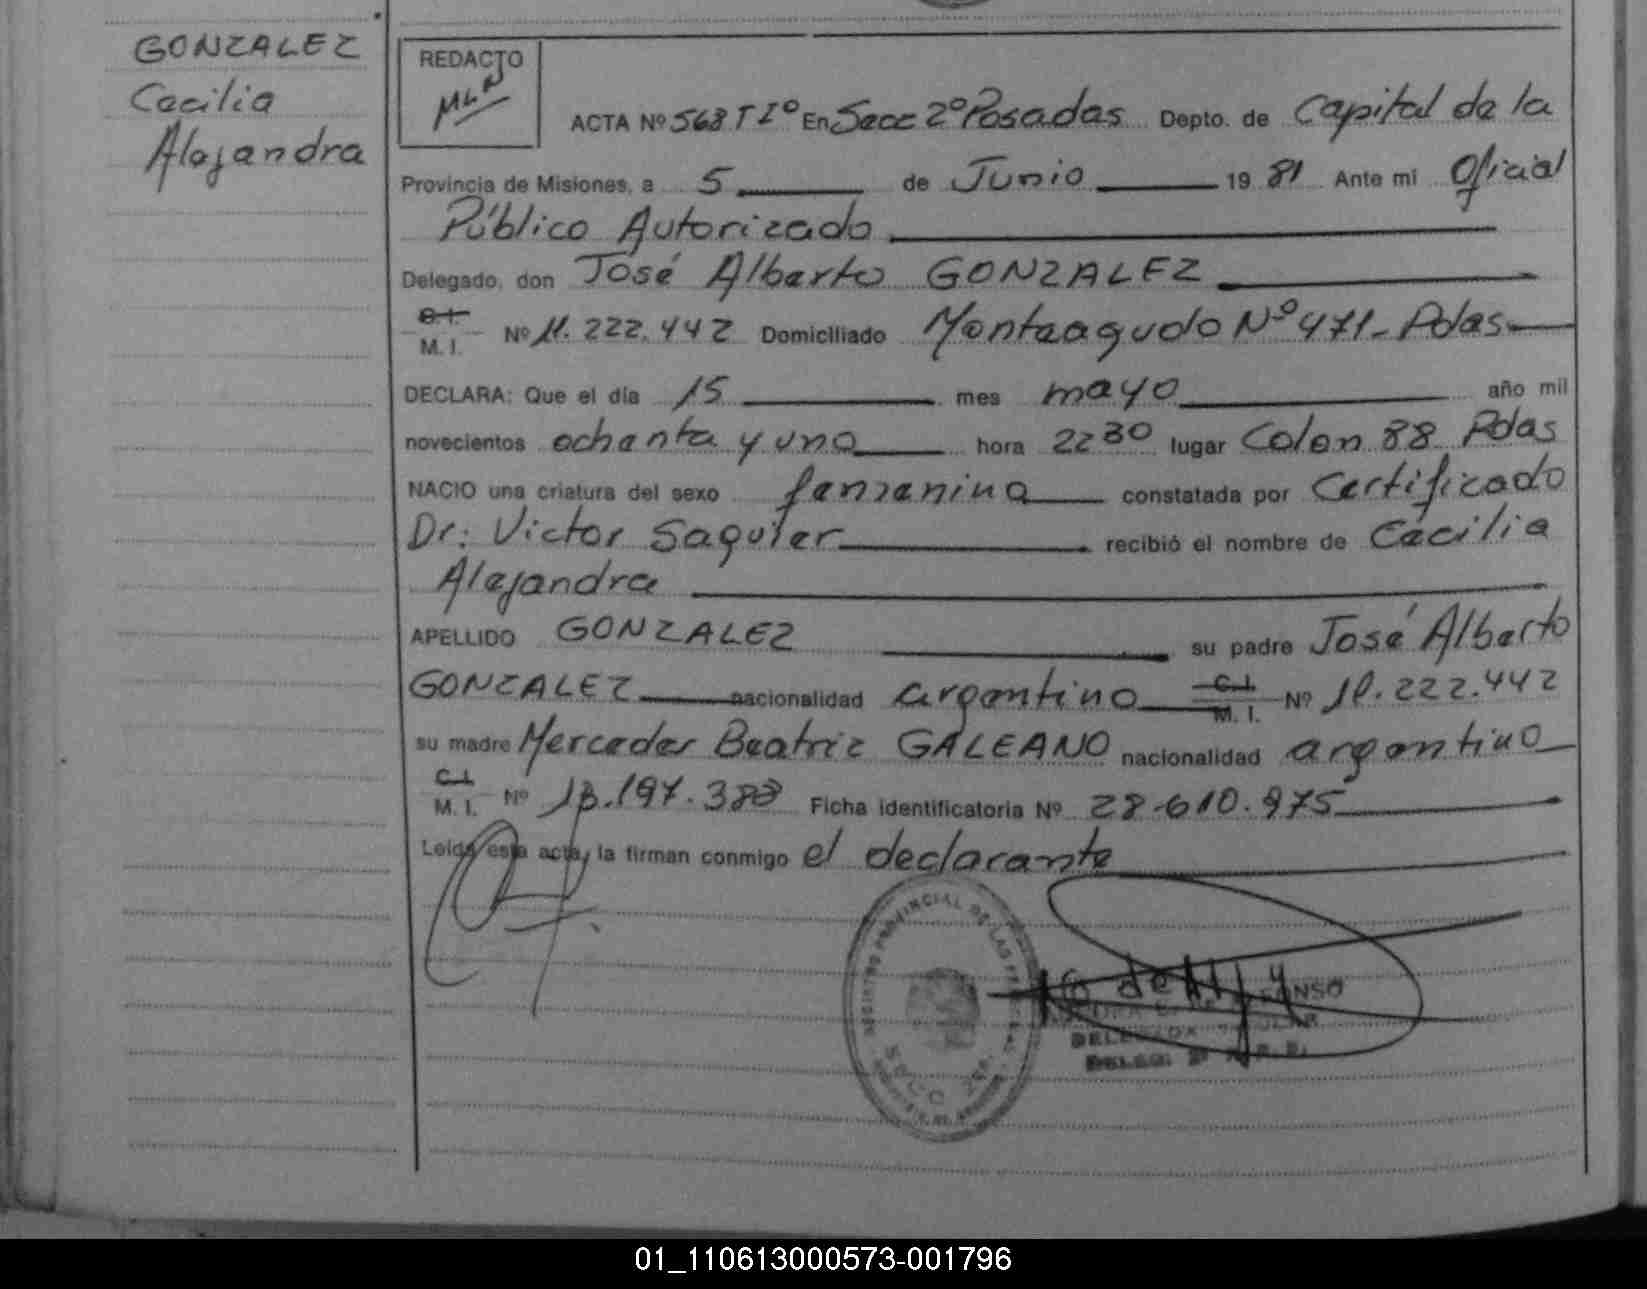 GONZALEZ
Cecilia
Alejandra
REDACTO
ACTA Nº 568 T Iº En Secc 2º Posadas Depto. de Capital de la
Provincia de Misiones, a 5 de Junio 19 81 Ante mi Oficial
Público Autorizado
Delegado, don José Alberto GONZALEZ
C.I.
M. I. Nº 11.222.442 Domiciliado Monteagudo Nº 471 - Pdas
DECLARA: Que el día 15 mes mayo año mil
novecientos ochenta y uno hora 22 30 lugar Colon 88 Pdas
NACIO una criatura del sexo femenino constatada por Certificado
Dr: Victor Saguier recibió el nombre de Cecilia
Alejandra
APELLIDO GONZALEZ su padre José Alberto
GONZALEZ nacionalidad argentino C.I. M. I. Nº 222.442
su madre Mercedes Beatriz GALEANO nacionalidad argentino
C.I.
M. I. Nº 13.197. Ficha identificatoria Nº 28.610.975
Leida esta acta, la firman conmigo el declarante
REGISTRO PROVINCIAL DE LAS PERSONAS
SECC 2da.
DELEG. 2ª
01_110613000573-001796